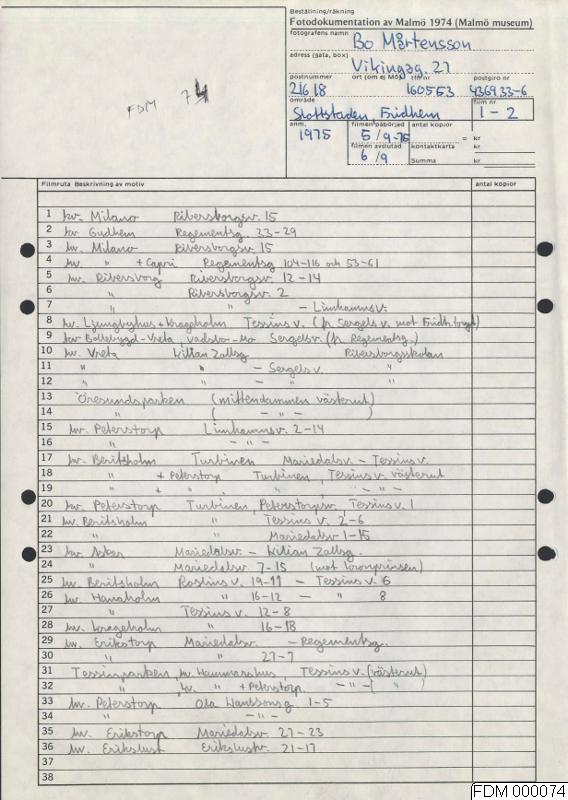 Beställning/räkning
Fotodokumentation av Malmö 1974 (Malmö museum)
fotografens namn Bo Mårtensson
adress (gata, box) Vikingag. 27
postnummer ort (om ej Mö) tfn nr postgiro nr
216 18 160553 436933-6
område film nr
Slottstaden, Fridhem 1-2
anm. filmen påbörjad antal kopior
1975 5/9-75 = kr
filmen avslutad kontaktkarta kr
6/9 Summa kr
FDM 74
Filmruta Beskrivning av motiv antal kopior
1 kv. Milano Ribersborgsv. 15
2 kv Gudhem Regementsg. 33-29
3 kv. Milano Ribersborgsv. 15
4 kv. " + Capri Regementsg 104-116 och 53-61
5 kv. Ribersborg Ribersborgsv. 12-14
6 " Ribersborgsv. 2
7 " " - Limhamnsv.
8 kv. Ljungbyhus + Krageholm Tessins v. (fr Sergels v. mot Fridh.torget)
9 kv Bollebygd-Vreta, Vadsbo-Mo Sergelsv. (fr Regementsg.)
10 kv. Vreta Kilian Zollsg Ribersborgsskolan
11 " " - Sergels v. "
12 " " - " "
13 Öresundsparken (mittendammen västerut)
14 " ( - " - )
15 kv. Peterstorp Limhamnsv. 2-14
16 " - " -
17 kv. Beritsholm Turbinen Mariedalsv. - Tessins v.
18 " + Peterstorp Turbinen, Tessins v. västerut
19 " + " " - " -
20 kv. Peterstorp Turbinen, Peterstorpsv, Tessins v. 1
21 kv. Beritsholm Tessins v. 2-6
22 " Mariedalsv 1-15
23 kv Asker Mariedalsv - Kilian Zollsg.
24 " Mariedalsv 7-15 (mot Kronprinsen)
25 kv. Beritsholm Roslins v. 19-11 - Tessins v. 6
26 kv Hanaholm " 16-12 - " 8
27 " Tessins v. 12-8
28 kv. Krageholm " 16-18
29 kv. Erikstorp Mariedalsv. - Regementsg.
30 " " 27-7
31 Tessinparken, kv. Hammarshus, Tessins v. (västerut)
32 " , kv. " + Peterstorp - " - ( " )
33 kv. Peterstorp Ola Hanssonsg 1-5
34 " - " -
35 kv. Erikstorp Mariedalsv. 27-23
36 kv. Erikslust Erikslustv. 21-17
37
38
FDM 000074